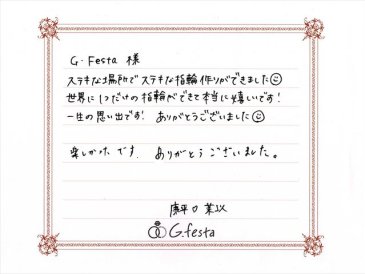 G.Festa 様
ステキな場所でステキな指輪作りができました☺
世界に1つだけの指輪ができて本当に嬉しいです!
一生の思い出です! ありがとうございました☺
楽しかったです。ありがとうございました。
康平
G.festa